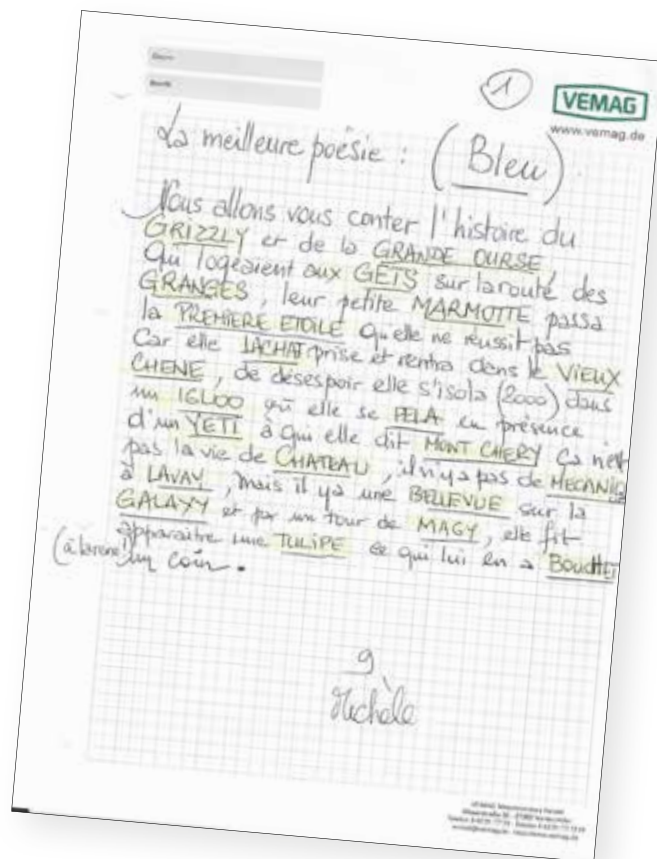 1
VEMAG
www.vemag.de
La meilleure poésie : (Bleu)
Nous allons vous conter l'histoire du
GRIZZLY et de la GRANDE OURSE,
Qui logeaient aux GETS sur la route des
GRANGES, leur petite MARMOTTE passa
la PREMIERE ETOILE Qu'elle ne réussit pas
Car elle LACHAT prise et rentra dans le VIEUX
CHENE, de désespoir elle s'isola (2000) dans
un IGLOO où elle se PELA en présence
d'un YETI à qui elle dit MONT CHERY ça n'est
pas la vie de CHATEAU, il n'y a pas de MECANIC
à LAVAY, mais il y a une BELLEVUE sur la
GALAXY et par un tour de MAGY, elle fit
apparaitre une TULIPE ce qui lui en a BOUCHET
un coin.
9
Michèle